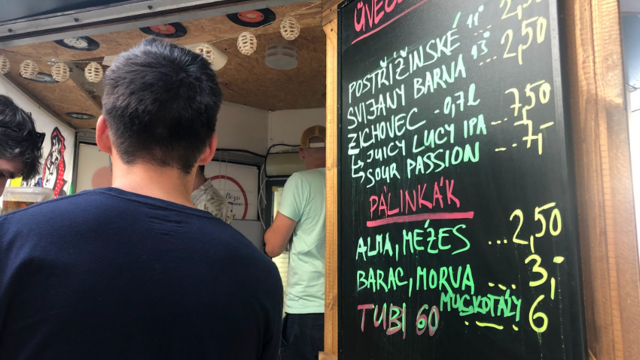 POSTŘIŽINSKÉ 11° 2,50
SVIJANY BARNA 13° ... 2,50
ZICHOVEC - 0,7l
JUICY LUCY IPA ... 7,50
SOUR PASSION ... 7,-
PÁLINKÁK
ALMA, MÉZES ... 2,50
BARAC, MORVA ... 3,-
MUSKOTÁLY
TUBI 60 6